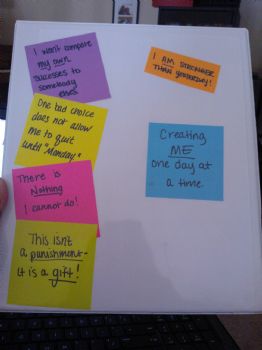 I won't compare
my own
successes to
somebody
else's
One bad choice
does not allow
me to quit
until "Monday."
There is
Nothing
I cannot do!
This isn't
a punishment-
it is a gift!
I AM STRONGER
THAN YESTERDAY!
Creating
ME
one day at
a time.